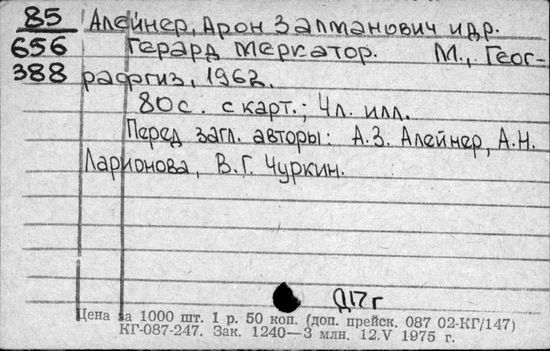 85 Алейнер, Арон Залманович и др.
656 Герард Меркатор. М., Геог-
388 рафгиз, 1962.
80 с. с карт.; 4 л. илл.
Перед загл. авторы: А.З. Алейнер, А.Н.
Ларионова, В.Г. Чуркин.
Д17г
Цена за 1000 шт. 1 р. 50 коп. (доп. прейск. 087 02-КГ/147)
КГ-087-247. Зак. 1240—3 млн. 12.V 1975 г.